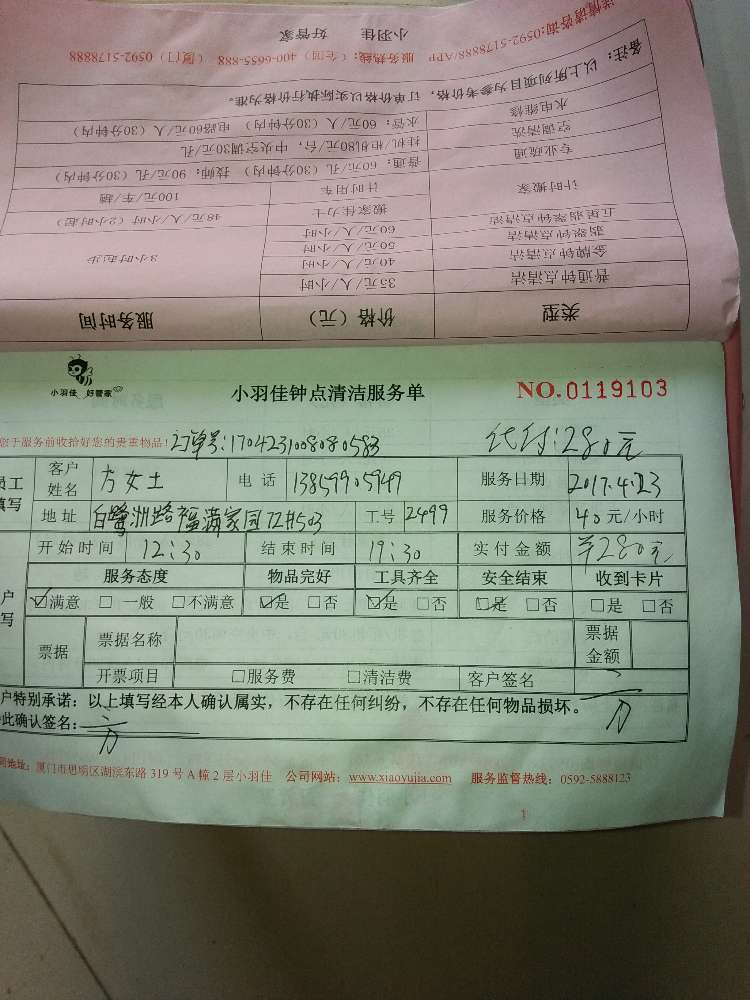 小羽佳 好管家
送情请咨询:0592-5178888/APP 服务热线:(全国)400-6655-888 (厦门)0592-5178888
备注:以上所列项目为参考价格,订单价格以实际执行价格为准。
水电维修 水管:60元/人(30分钟内) 电路60元/人(30分钟内)
空调清洗 挂机/柜机80元/台,中央空调30元/孔
专业疏通 普通:60元/孔(30分钟内) 技师:90元/孔(30分钟内)
计时搬家 计时用车 100元/车/趟
搬家佳力士 48元/人/小时(2小时起)
五星翡翠钟点清洁 60元/人/小时
翡翠钟点清洁 50元/人/小时
金牌钟点清洁 40元/人/小时 3小时起步
普通钟点清洁 35元/人/小时
类型 价格(元) 服务时间
小羽佳 好管家
小羽佳钟点清洁服务单 NO.0119103
您于服务前收拾好您的贵重物品! 订单号:1704231008080583 代付:280元
员工填写 客户姓名 方女士 电话 13859905949 服务日期 2017.4.23
地址 白鹭洲路福满家园72#503 工号 2499 服务价格 40元/小时
开始时间 12:30 结束时间 19:30 实付金额 ¥280元
服务态度 物品完好 工具齐全 安全结束 收到卡片
户写 ☑满意 □一般 □不满意 ☑是 □否 ☑是 □否 ☑是 □否 □是 □否
票据 票据名称 票据金额
开票项目 □服务费 □清洁费 客户签名 方
户特别承诺:以上填写经本人确认属实,不存在任何纠纷,不存在任何物品损坏。
此确认签名: 方
司地址:厦门市思明区湖滨东路319号A幢2层小羽佳 公司网站:www.xiaoyujia.com 服务监督热线:0592-5888123
1